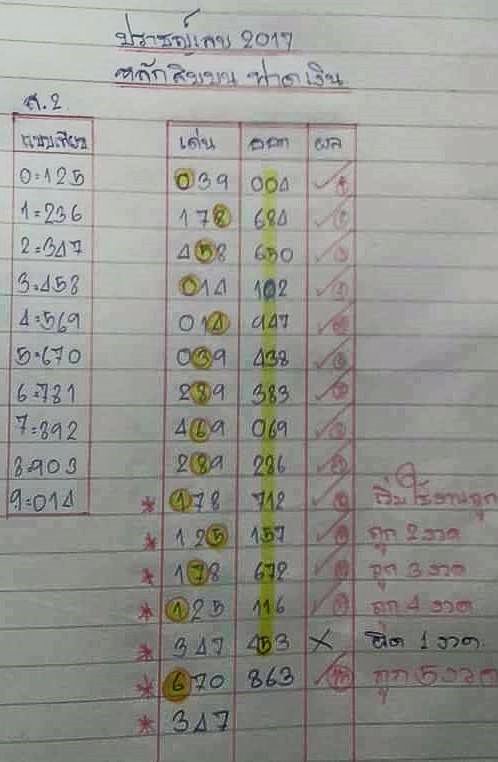 ปราชญ์เลข 2017
หลักสิบบน ฟาดเงิน
ส.2
แบบเทียบ เด่น ออก ผล
0=125 039 004 ✓
1=236 178 684 ✓
2=347 458 650 ✓
3=458 014 102 ✓
4=569 014 947 ✓
5=670 039 438 ✓
6=781 289 383 ✓
7=892 469 069 ✓
8=903 289 286 ✓
9=014 * 178 712 ✓ เริ่มใช้งานถูก
* 125 157 ✓ ถูก 2 งวด
* 178 672 ✓ ถูก 3 งวด
* 125 116 ✓ ถูก 4 งวด
* 347 453 × ผิด 1 งวด
* 670 863 ✓ ถูก 5 งวด
* 347